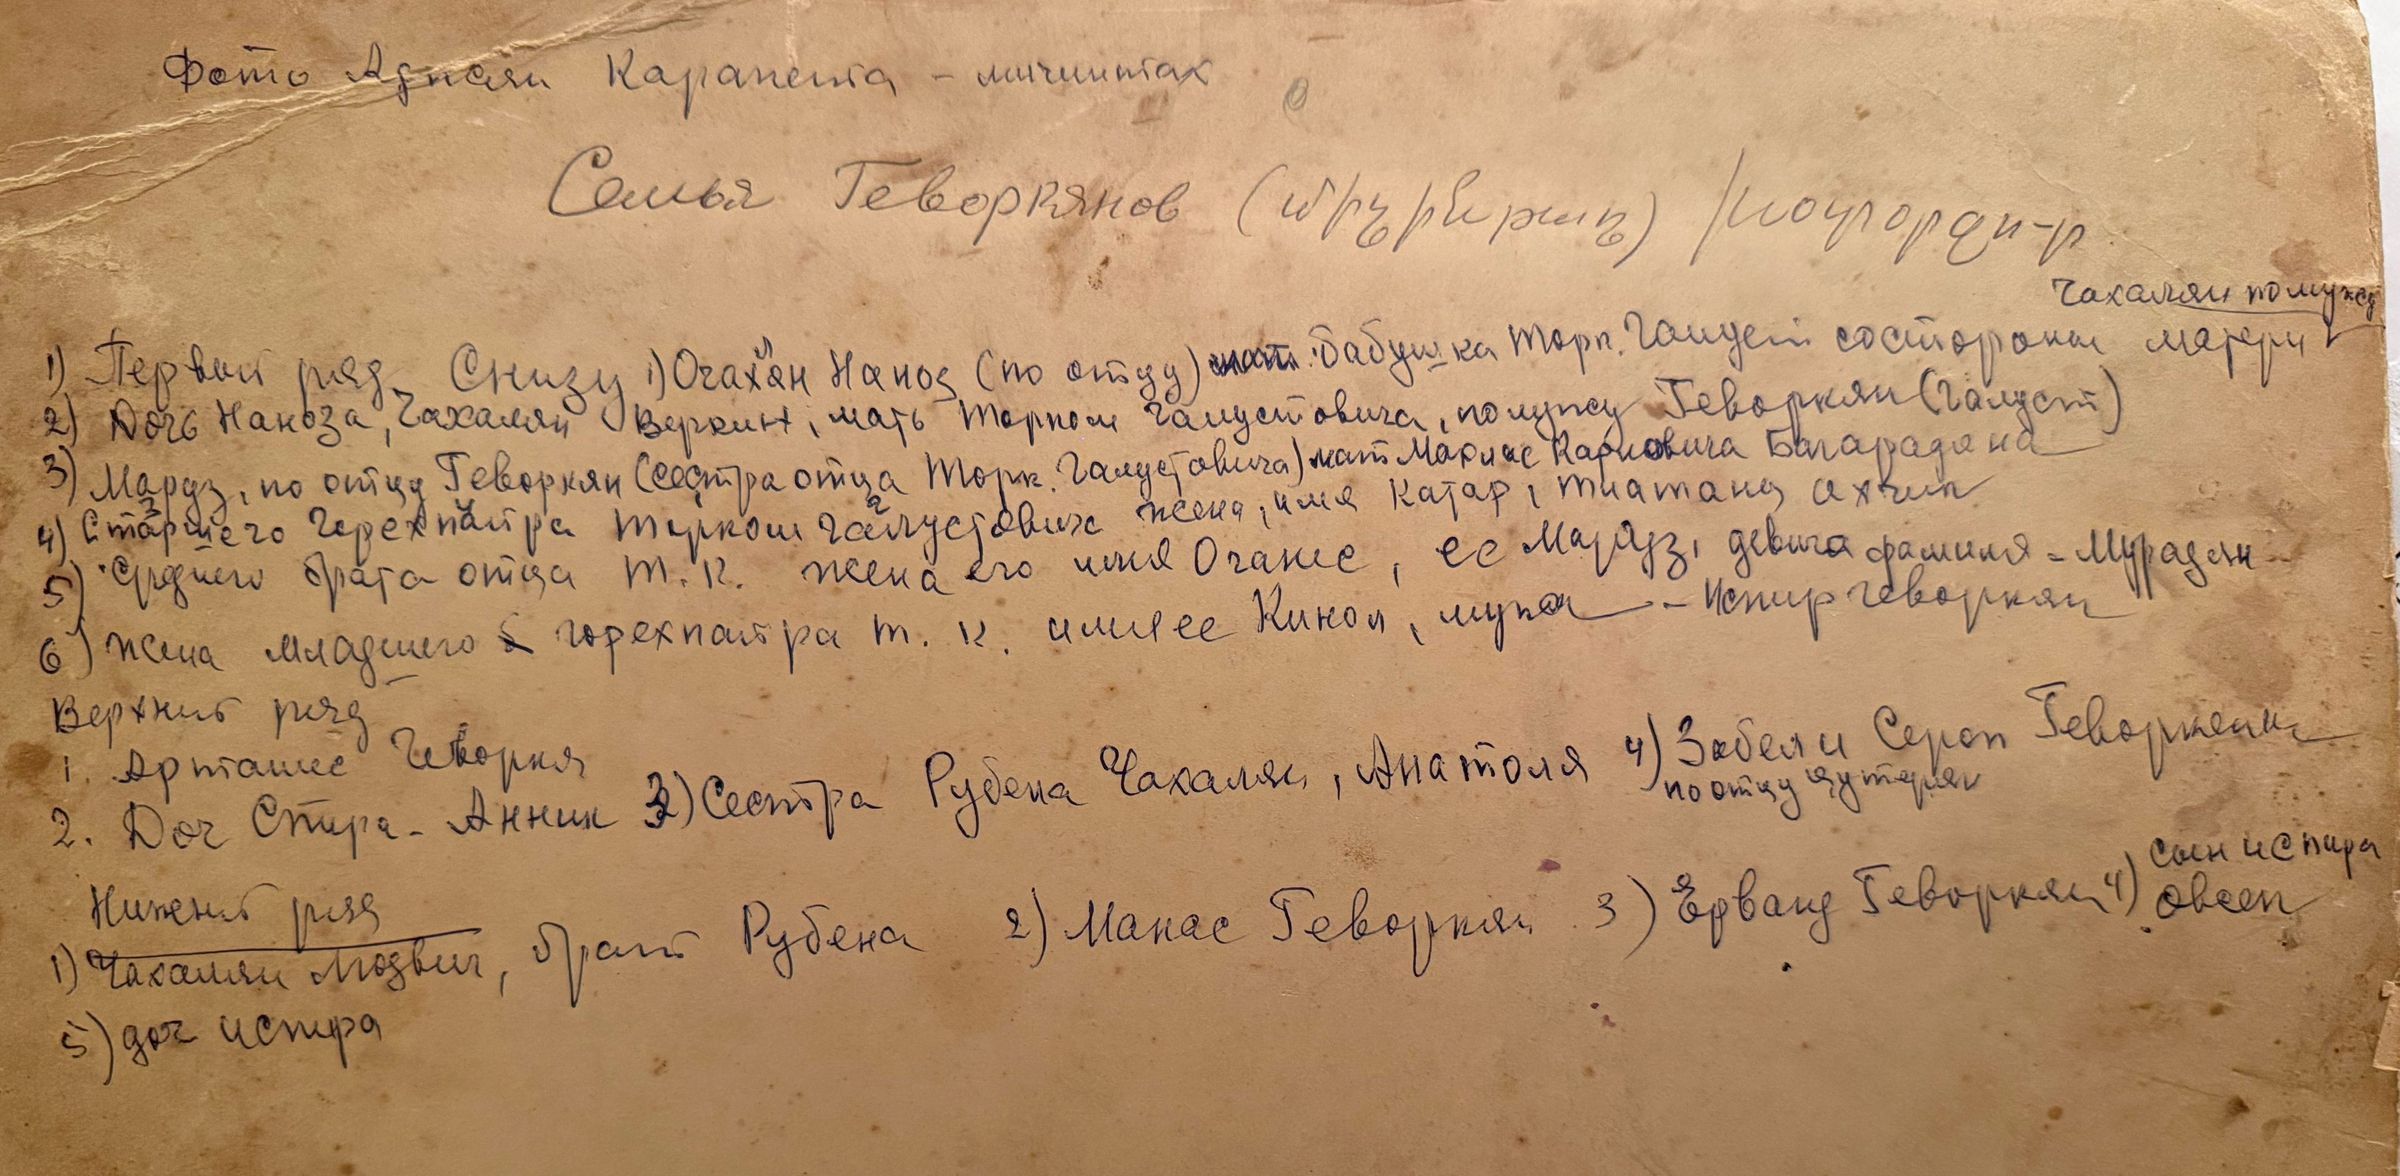 Фото Адисян Карапета –
Семья Геворкянов
Чахалян по мужу
1) Первый ряд. Снизу 1) Очахян Наноз (по отцу) бабушка Торк. Галуст со стороны матери
2) Дочь Наноза, Чахалян Веркин, мать Торком Галустовича, по мужу Геворкян (Галуст)
3) Маруз, по отцу Геворкян (сестра отца Торк. Галустовича) мат Карповича Баграджяна
4) Старшего Торком Галустовича жена, имя Катар,
5) Среднего брата отца Т. К. жена его имя Оганес, ее Маруз, девича фамиля – Мурадян
6) Жена младшего т. к. имя ее , мужа – Испир Геворкян
Верхний ряд
1. Арташес Геворкя
2. Доч Спира – Анник 3) Сестра Рубена Чахалян, Анатоля 4) Забел и Сероп Геворкяни
по отцу
Нижений ряд
сын испира
1) Чахалян Людвиг, брат Рубена 2) Манас Геворкян 3) Ерванд Геворкян 4) Овсеп
5) доч испира